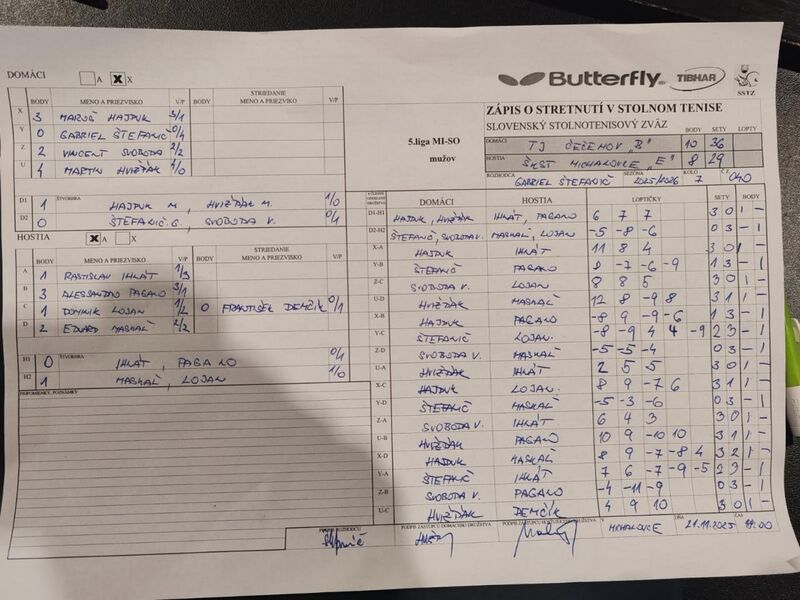 DOMÁCI A X X
Butterfly TIBHAR SSTZ
BODY MENO A PRIEZVISKO V/P BODY STRIEDANIE MENO A PRIEZVISKO V/P
X 3 MAROŠ HAJDUK 3/1
Y 0 GABRIEL ŠTEFANIČ 0/4
Z 2 VINCENT SVOBODA 2/2
U 4 MARTIN HVIŽĎÁK 4/0
D1 1 ŠTVORHRA HAJDUK M., HVIŽĎÁK M. 1/0
D2 0 ŠTEFANIČ G. SVOBODA V. 0/1
HOSTIA X A X
BODY MENO A PRIEZVISKO V/P BODY STRIEDANIE MENO A PRIEZVISKO V/P
A 1 RASTISLAV IHNÁT 1/3
B 3 ALESSANDRO PAGANO 3/1
C 1 DOMINIK LOJAN 1/2 0 FRANTIŠEK DEMČIK 0/1
D 2 EDUARD MASKAĽ 2/2
H1 0 ŠTVORHRA IHNÁT, PAGANO 0/1
H2 1 MASKAĽ, LOJAN 1/0
PRIPOMIENKY, POZNÁMKY
PODPIS ROZHODCU
5.liga MI-SO
mužov
ZÁPIS O STRETNUTÍ V STOLNOM TENISE
SLOVENSKÝ STOLNOTENISOVÝ ZVÄZ
DOMÁCI TJ ČEČEHOV "B" BODY 10 SETY 36 LOPTY
HOSTIA ŠKST MICHALOVCE "E" 8 29
ROZHODCA GABRIEL ŠTEFANIČ SEZÓNA 2025/2026 KOLO 7 040
DOMÁCI HOSTIA LOPTIČKY SETY BODY
D1-H1 HAJDUK, HVIŽĎÁK IHNÁT, PAGANO 6 7 7 3 0 1 -
D2-H2 ŠTEFANIČ, SVOBODA V. MASKAĽ, LOJAN -5 -8 -6 0 3 - 1
X-A HAJDUK IHNÁT 11 8 4 3 0 1 -
Y-B ŠTEFANIČ PAGANO 9 -7 -6 -9 1 3 - 1
Z-C SVOBODA V. LOJAN 8 8 5 3 0 1 -
U-D HVIŽĎÁK MASKAĽ 12 8 -9 8 3 1 1 -
X-B HAJDUK PAGANO -8 9 -9 -6 1 3 - 1
Y-C ŠTEFANIČ LOJAN -8 -9 4 4 -9 2 3 - 1
Z-D SVOBODA V. MASKAĽ -5 -5 -4 0 3 - 1
U-A HVIŽĎÁK IHNÁT 2 5 5 3 0 1 -
X-C HAJDUK LOJAN 8 9 -7 6 3 1 1 -
Y-D ŠTEFANIČ MASKAĽ -5 -3 -6 0 3 - 1
Z-A SVOBODA V. IHNÁT 6 4 3 3 0 1 -
U-B HVIŽĎÁK PAGANO 10 9 -10 10 3 1 1 -
X-D HAJDUK MASKAĽ 8 9 -7 -8 4 3 2 1 -
Y-A ŠTEFANIČ IHNÁT 7 6 -7 -9 -5 2 3 - 1
Z-B SVOBODA V. PAGANO -4 -11 -9 0 3 - 1
U-C HVIŽĎÁK DEMČIK 4 9 10 3 0 1 -
PODPIS ZÁSTUPCU DOMÁCEHO DRUŽSTVA PODPIS ZÁSTUPCU HOSŤUJÚCEHO DRUŽSTVA V MICHALOVCE DŇA 21.11.2025 ČAS